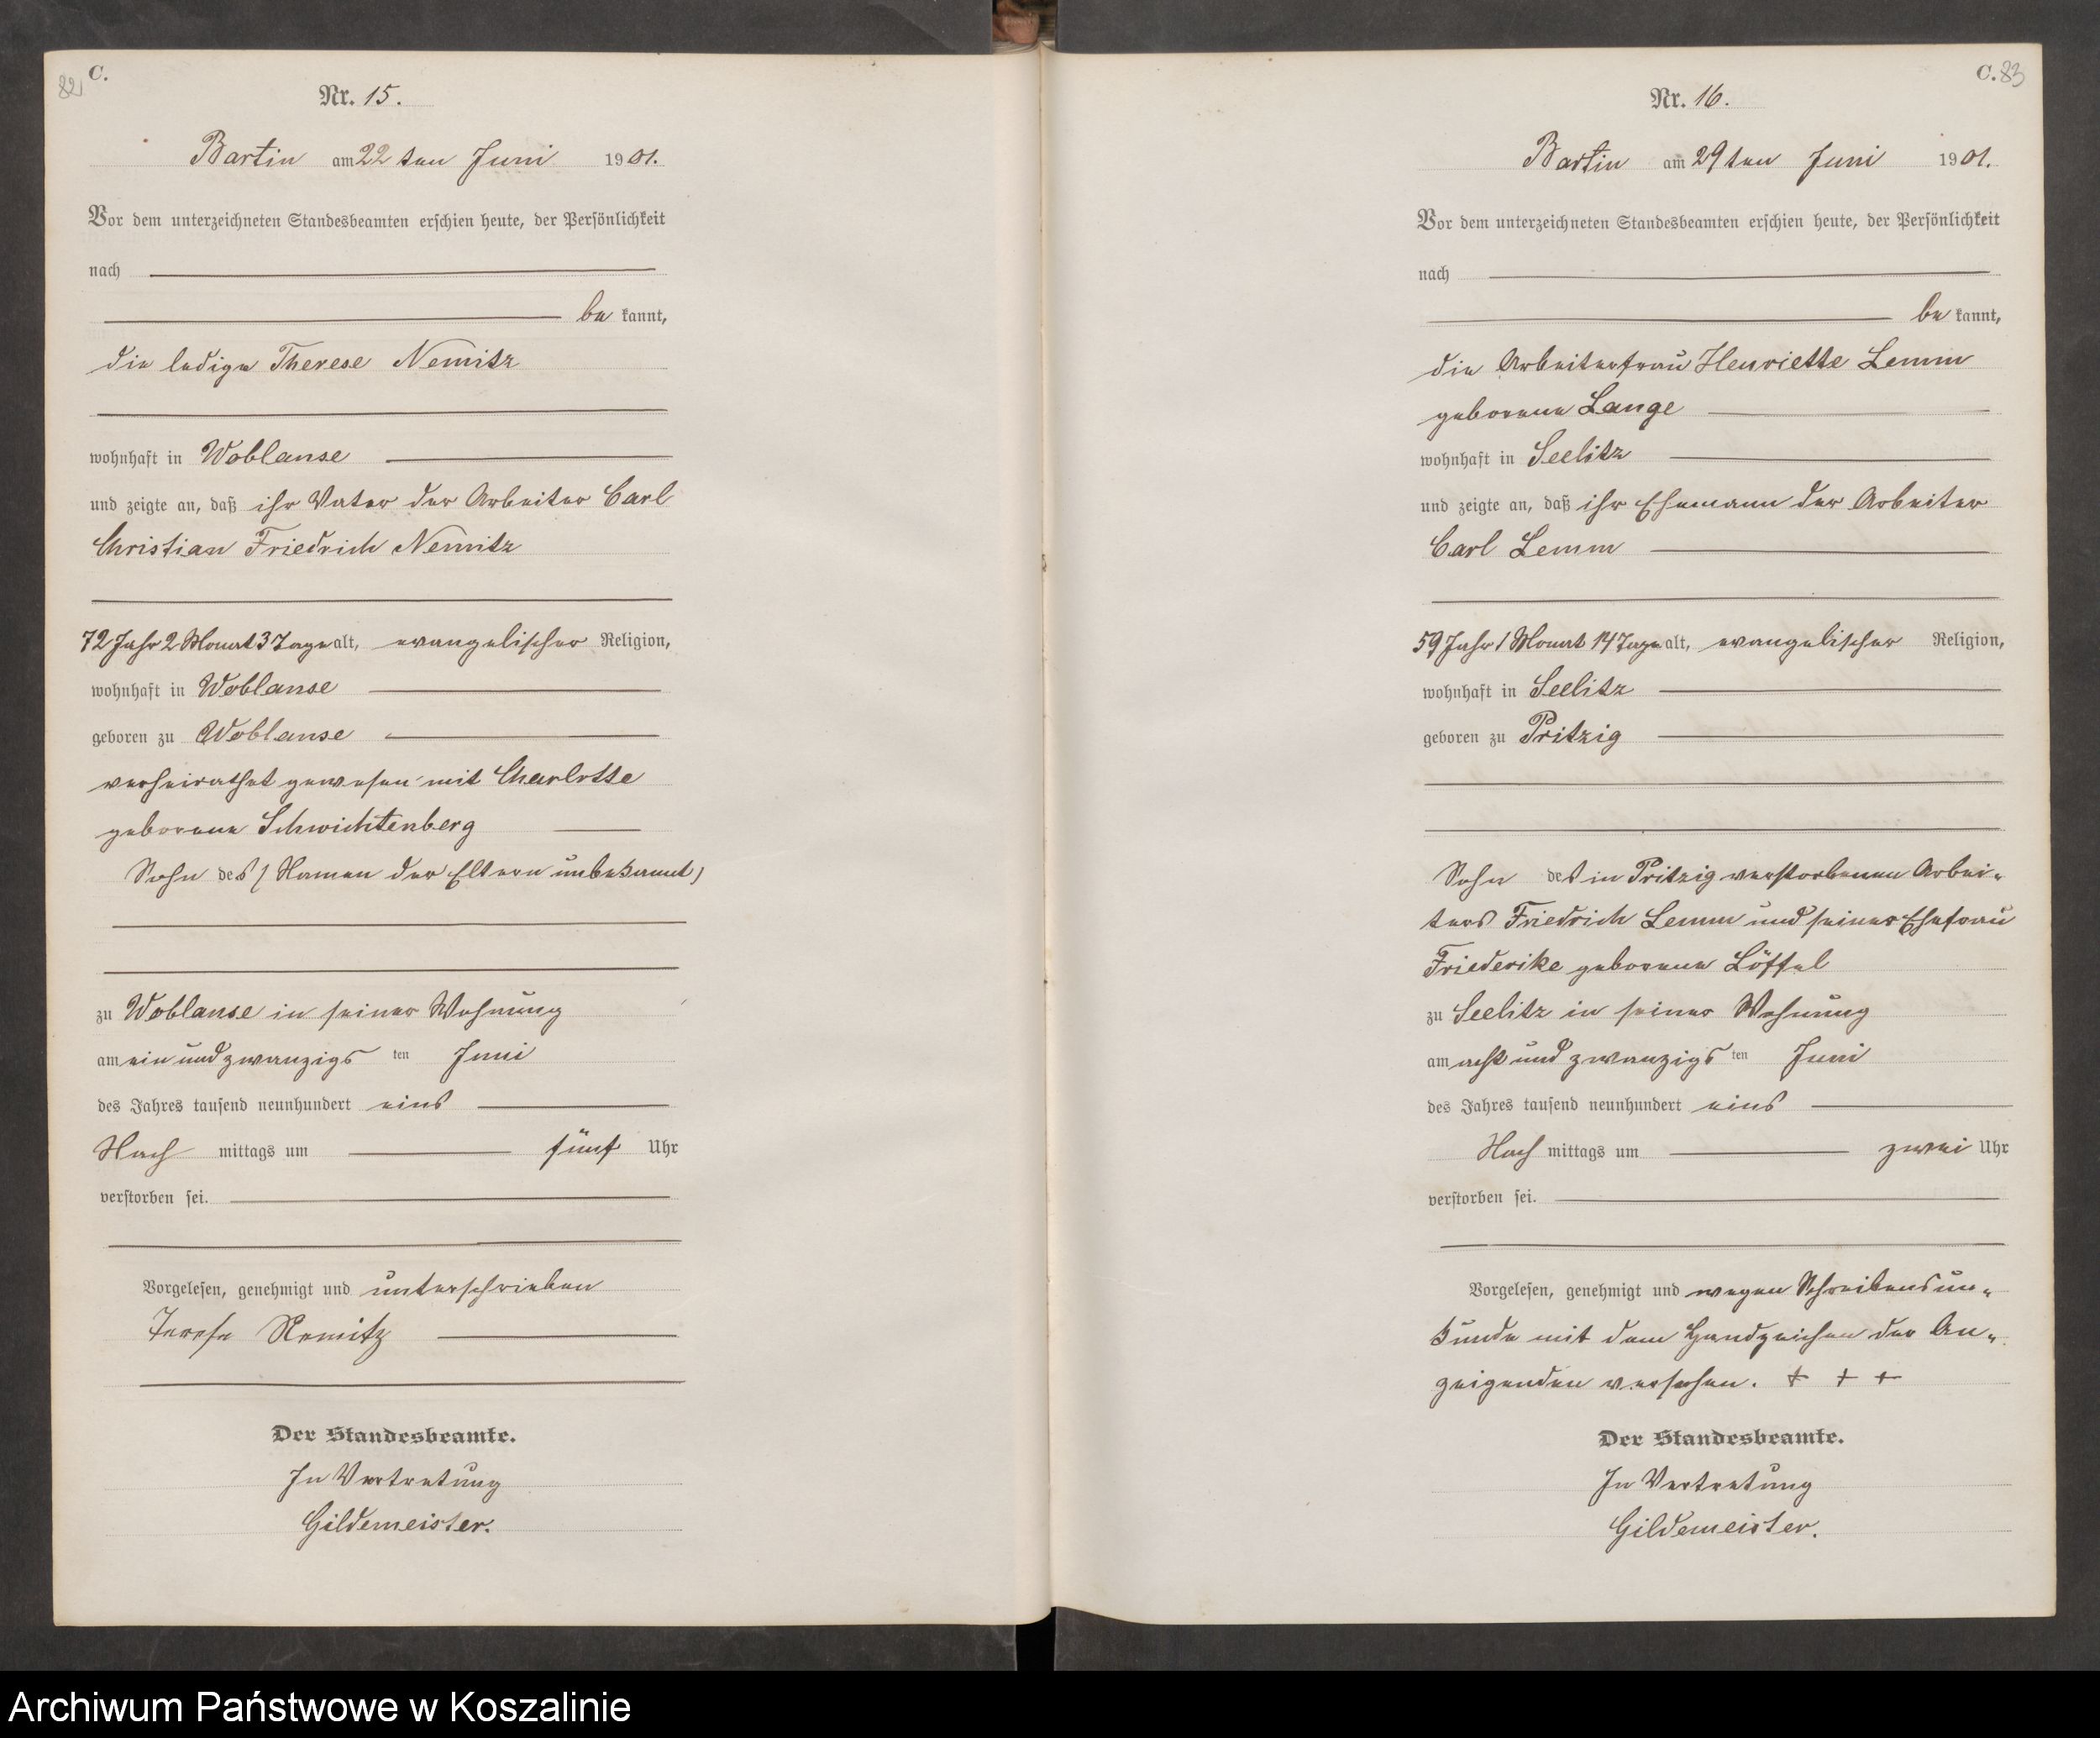 82
C.
Nr. 15.
Bartin am 22 ten Juni 1901.
Vor dem unterzeichneten Standesbeamten erschien heute, der Persönlichkeit
nach
be kannt,
die ledige Therese Nemitz
wohnhaft in Woblanse
und zeigte an, daß ihr Vater der Arbeiter Carl
Christian Friedrich Nemitz
72 Jahr 2 Monat 3 Tage alt, evangelischer Religion,
wohnhaft in Woblanse
geboren zu Woblanse
verheirathet gewesen mit Charlotte
geborene Schwichtenberg
Sohn des (Namen der Eltern unbekannt)
zu Woblanse in seiner Wohnung
am ein und zwanzigs ten Juni
des Jahres tausend neunhundert eins
Nach mittags um fünf Uhr
verstorben sei.
Vorgelesen, genehmigt und unterschrieben
Terese Nemitz
Der Standesbeamte.
In Vertretung
Gildemeister.
C. 83
Nr. 16.
Bartin am 29 ten Juni 1901.
Vor dem unterzeichneten Standesbeamten erschien heute, der Persönlichkeit
nach
be kannt,
die Arbeiterfrau Henriette Lemm
geborene Lange
wohnhaft in Seelitz
und zeigte an, daß ihr Ehemann der Arbeiter
Carl Lemm
59 Jahr 1 Monat 14 Tage alt, evangelischer Religion,
wohnhaft in Seelitz
geboren zu Pritzig
Sohn des in Pritzig verstorbenen Arbei-
ters Friedrich Lemm und seiner Ehefrau
Friederike geborene Löffel
zu Seelitz in seiner Wohnung
am acht und zwanzigs ten Juni
des Jahres tausend neunhundert eins
Nach mittags um zwei Uhr
verstorben sei.
Vorgelesen, genehmigt und wegen Schreibensun-
kunde mit dem Handzeichen der An-
zeigenden versehen. + + +
Der Standesbeamte.
In Vertretung
Gildemeister.
Archiwum Państwowe w Koszalinie